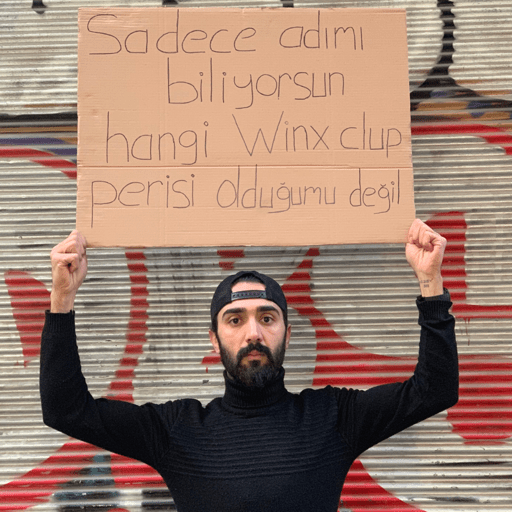 Sadece adımı
biliyorsun
hangi Winx clup
perisi olduğumu değil